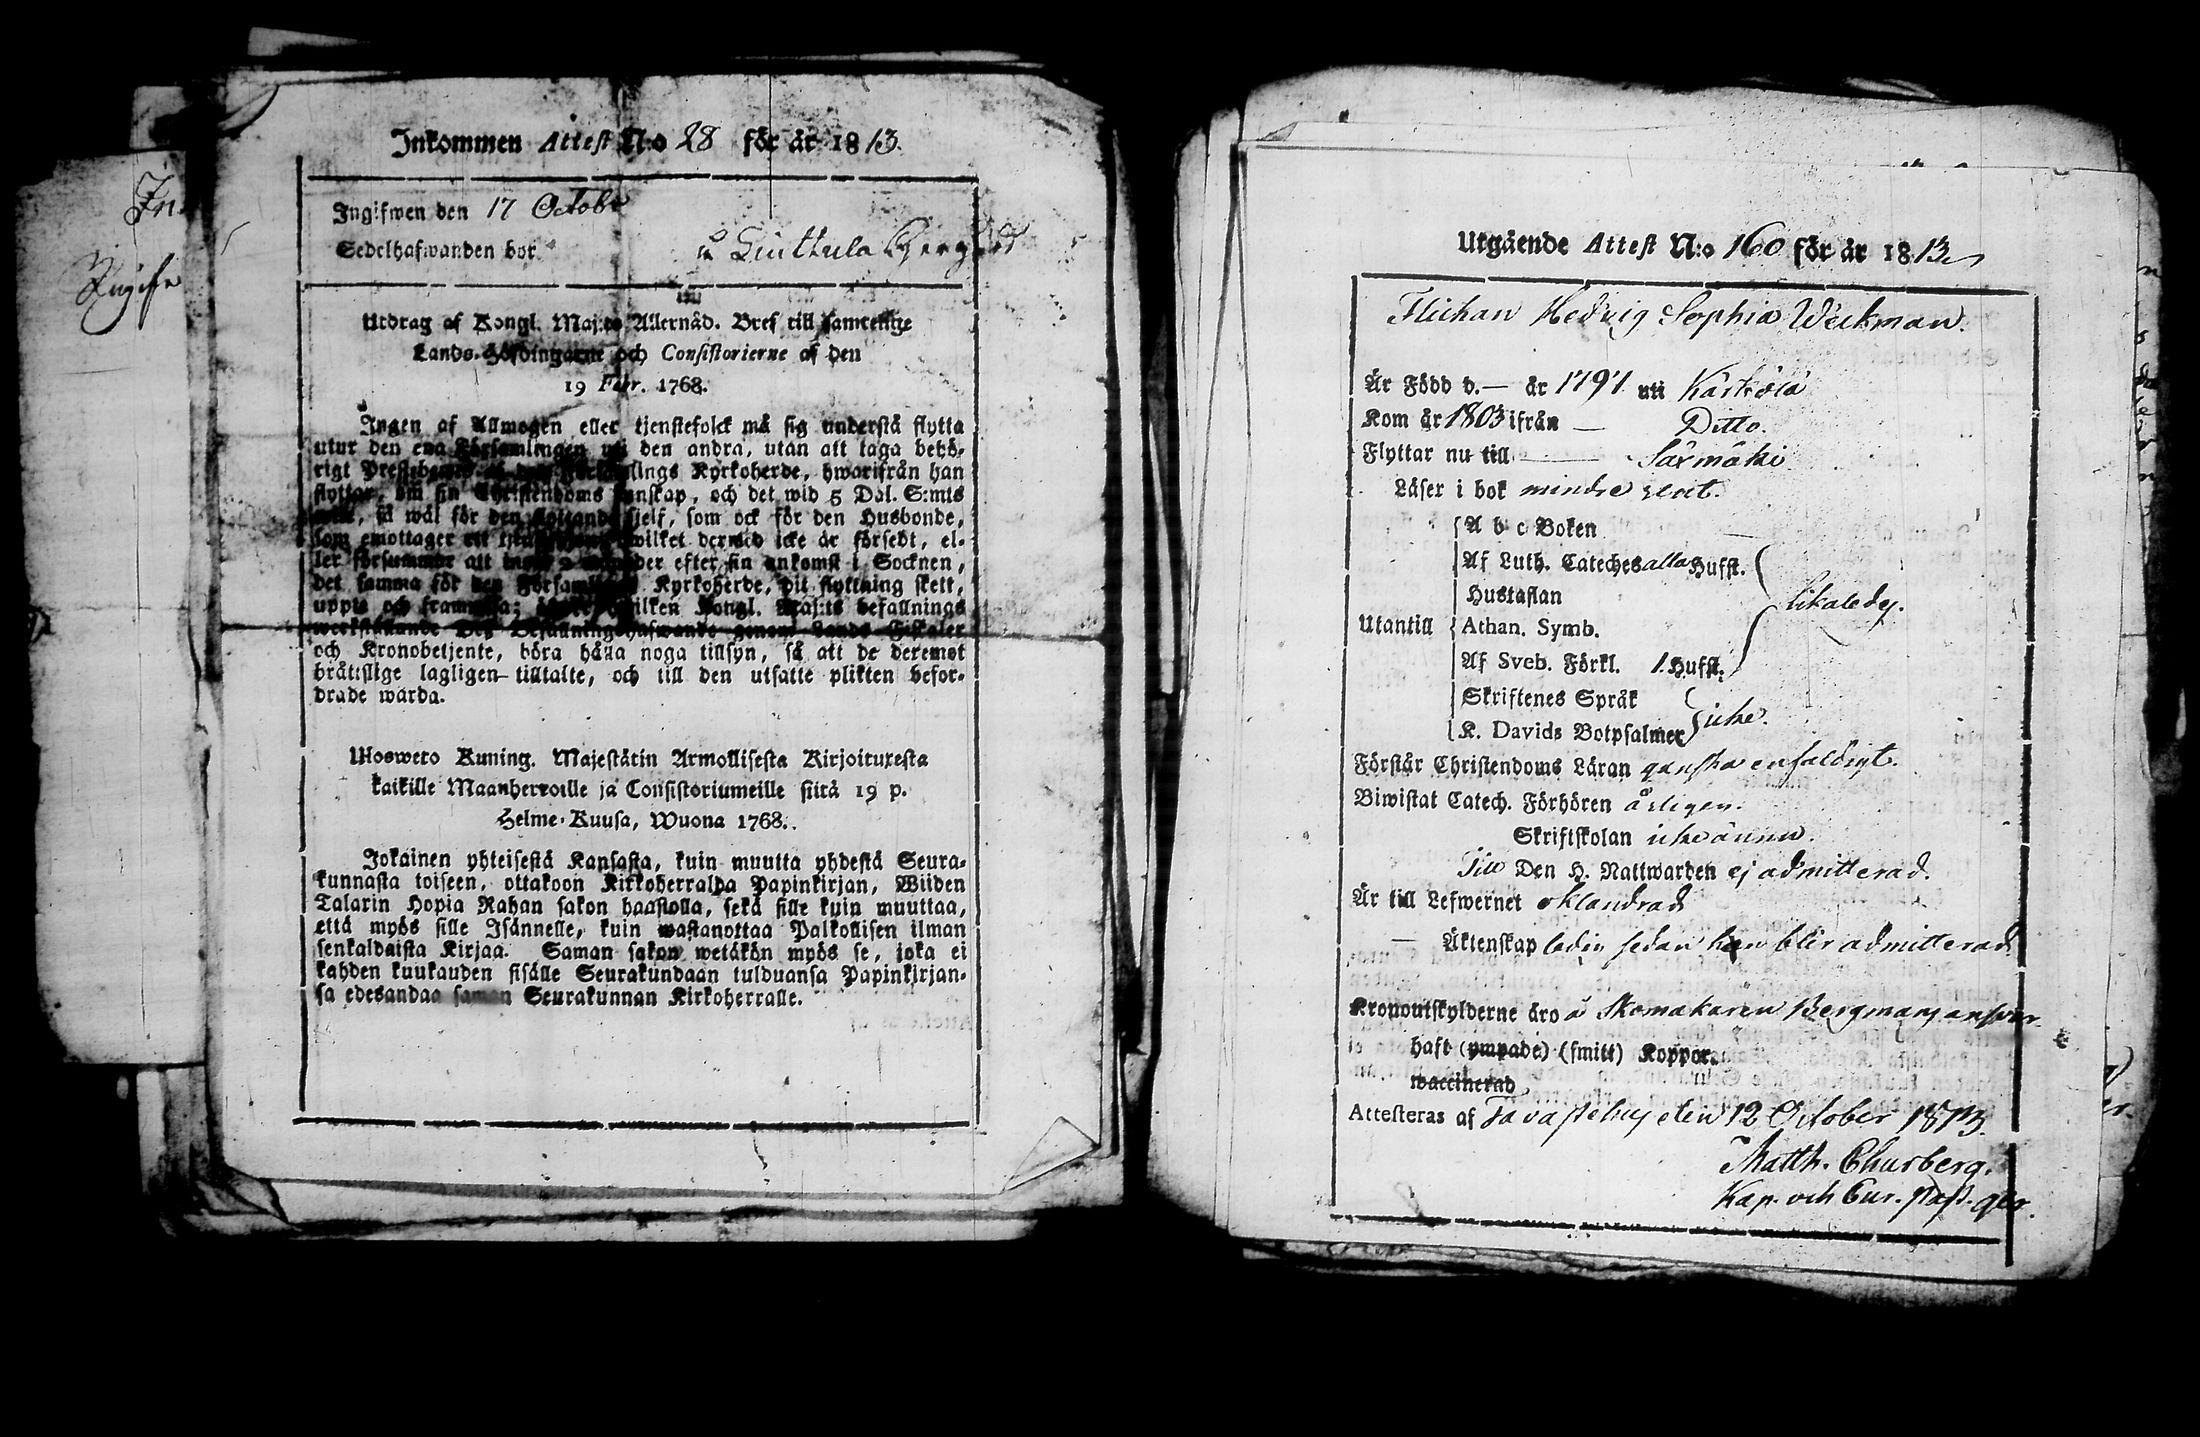 In
Ingifw
Inkommen Attest N:o 28 för år 1813.
Ingifwen den 17 Octobr
Sedelhafwanden bor
Utdrag af Kongl. Maj:ts Allernåd. Bref till samtelige
Lands-Höfdingarne och Consistorierne af den
19 Febr. 1768.
Ingen af Allmogen eller tjenstefolck må sig understå flytta
utur den ena Församlingen uti den andra, utan att taga behö-
rigt Prestebewis af den Församlings Kyrkoherde, hwarifrån han
flyttar, om sin Christendoms kunskap, och det wid 5 Dal. S:mts
wite, så wäl för den flyttande sjelf, som ock för den Husbonde,
som emottager ett hwilket dermed icke är försedt, el-
ler försummar att inom 2 månader efter sin ankomst i Socknen,
det samma för den Församlings Kyrkoherde, dit flyttning skett,
uppte och framwisa; hwilken Kongl. Maj:ts befallnings
werkställande Des Befallningshafwande genom Lands Fiskaler
och Kronobetjente, böra hålla noga tillsyn, så att de deremot
bråttslige lagligen tilltalte, och till den utsatte plikten befor-
drade warda.
Uloswero Kuning. Majestätin Armollisesta Kirjoituxesta
kaikille Maanherroille ja Consistoriumeille siitä 19 p.
Helme-Kuusa, Wuona 1768.
Jokainen yhteisestä Kansasta, kuin muutta yhdestä Seura-
kunnasta toiseen, ottakoon Kirkoherralda Papinkirjan, Wiiden
Talarin Hopia Rahan sakon haastolla, sekä sille kuin muuttaa,
että myös sille Isännelle, kuin wastanottaa Palkollisen ilman
senkaldaista Kirjaa. Saman sakon wetäkön myös se, joka ei
kahden kuukauden sisälle Seurakundaan tulduansa Papinkirjan-
sa edesandaa saman Seurakunnan Kirkoherralle.
Utgående Attest N:o 160 för år 1813
Flickan Hedvig Sophia Weckman.
Är Född d. — år 1797 uti Kärkölä
Kom år 1803 ifrån — Ditto.
Flyttar nu till — Särmäki
Läser i bok mindre redit.
A b c Boken
Af Luth. Cateches alla Hufst.
Hustaflan
likaledes.
Utantill
Athan. Symb.
Af Sveb. Förkl. 1. Hufst.
Skriftenes Språk
icke.
K. Davids Botpsalmer
Förstår Christendoms Läran ganska enfaldigt.
Biwistat Catech. Förhören årligen.
Skriftskolan icke ännu.
Till Den H. Nattwarden ej admitterad.
Är till Lefwernet oklandrad
— Äktenskap ledig sedan hon blir admitterad
Kronoutskylderne äro å Skomakaren Bergmans answar.
haft (ympade) (smitt) Koppor.
waccinerad
Attesteras af Tavastehus den 12 October 1813.
Matth. Churberg.
Kap. och Cur. past. ger.